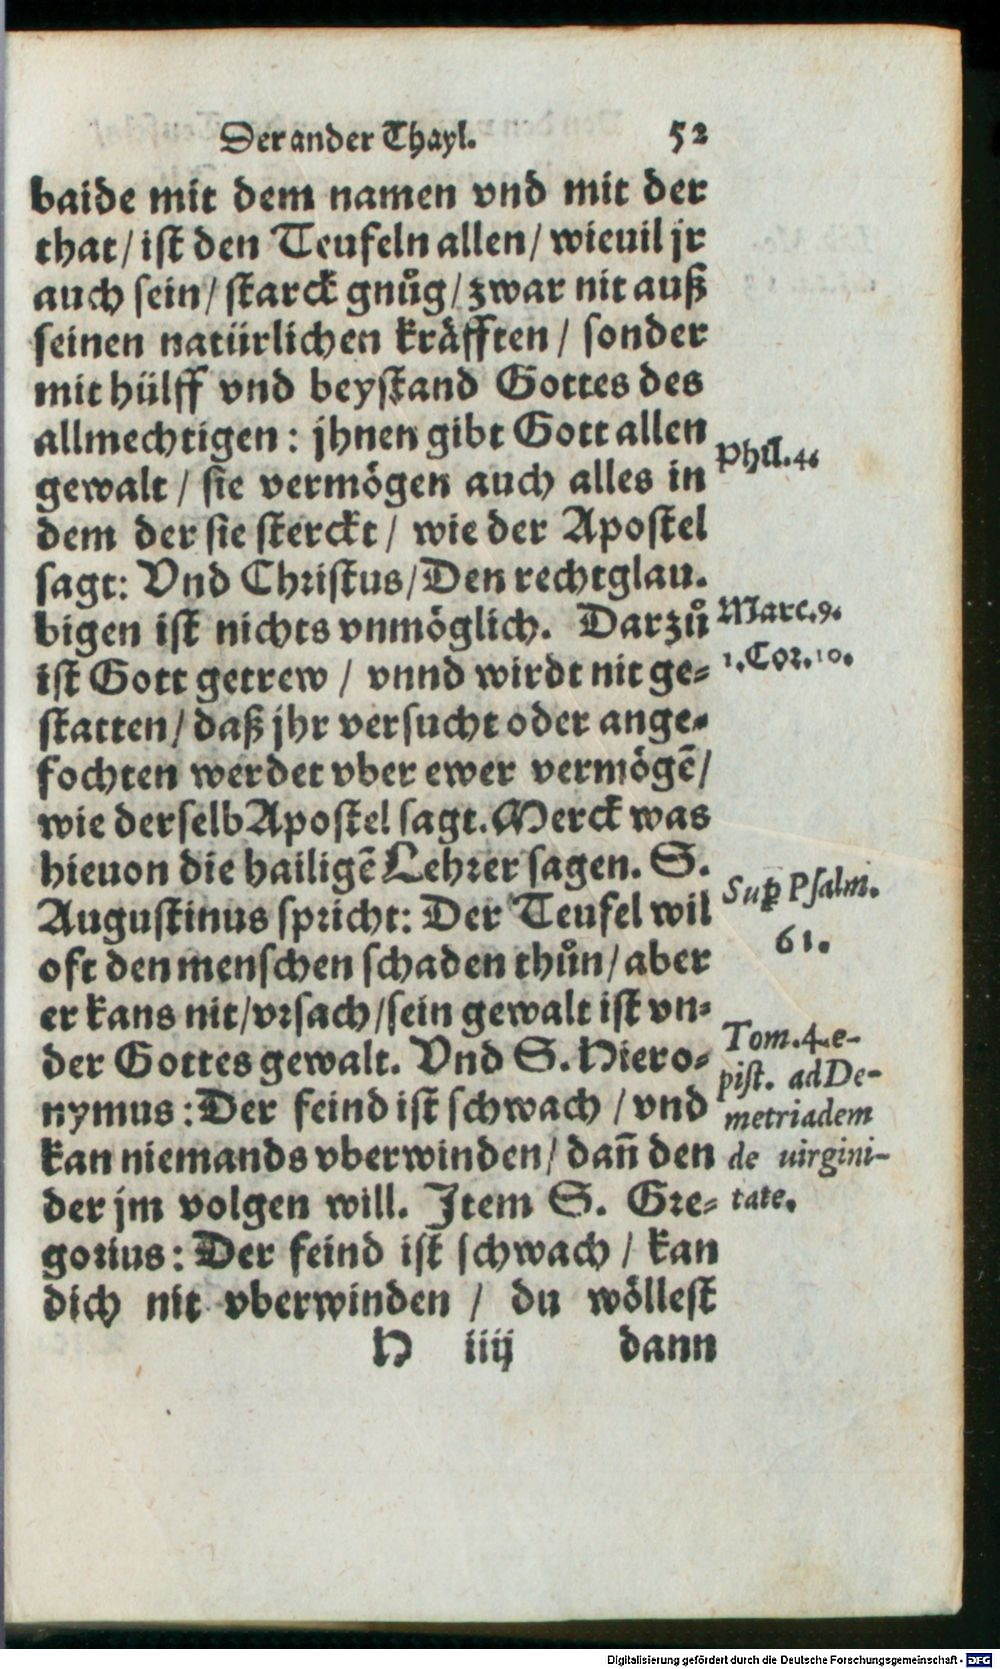 Der ander Thayl. 52
baide mit dem namen vnd mit der
that/ ist den Teufeln allen/ wieuil jr
auch sein/ starck gnůg/ zwar nit auß
seinen natürlichen kräfften/ sonder
mit hülff vnd beystand Gottes des
allmechtigen: jhnen gibt Gott allen
gewalt/ sie vermögen auch alles in
Phil.4.
dem der sie sterckt/ wie der Apostel
sagt: Vnd Christus/ Den rechtglau-
bigen ist nichts vnmöglich. Darzů
Marc.9.
ist Gott getrew/ vnnd wirdt nit ge-
1.Cor.10.
statten/ daß jhr versucht oder ange-
fochten werdet vber ewer vermögẽ/
wie derselb Apostel sagt. Merck was
hieuon die hailigẽ Lehrer sagen. S.
Augustinus spricht: Der Teufel wil
Sup Psalm.
61.
oft den menschen schaden thůn/ aber
er kans nit/ vrsach/ sein gewalt ist vn-
der Gottes gewalt. Vnd S. Hiero-
nymus: Der feind ist schwach/ vnd
kan niemands vberwinden/ dañ den
der jm volgen will. Item S. Gre-
Tom.4.e-
pist. ad De-
metriadem
de uirgini-
tate.
gorius: Der feind ist schwach/ kan
dich nit vberwinden/ du wöllest
H iiij dann
Digitalisierung gefördert durch die Deutsche Forschungsgemeinschaft - DFG